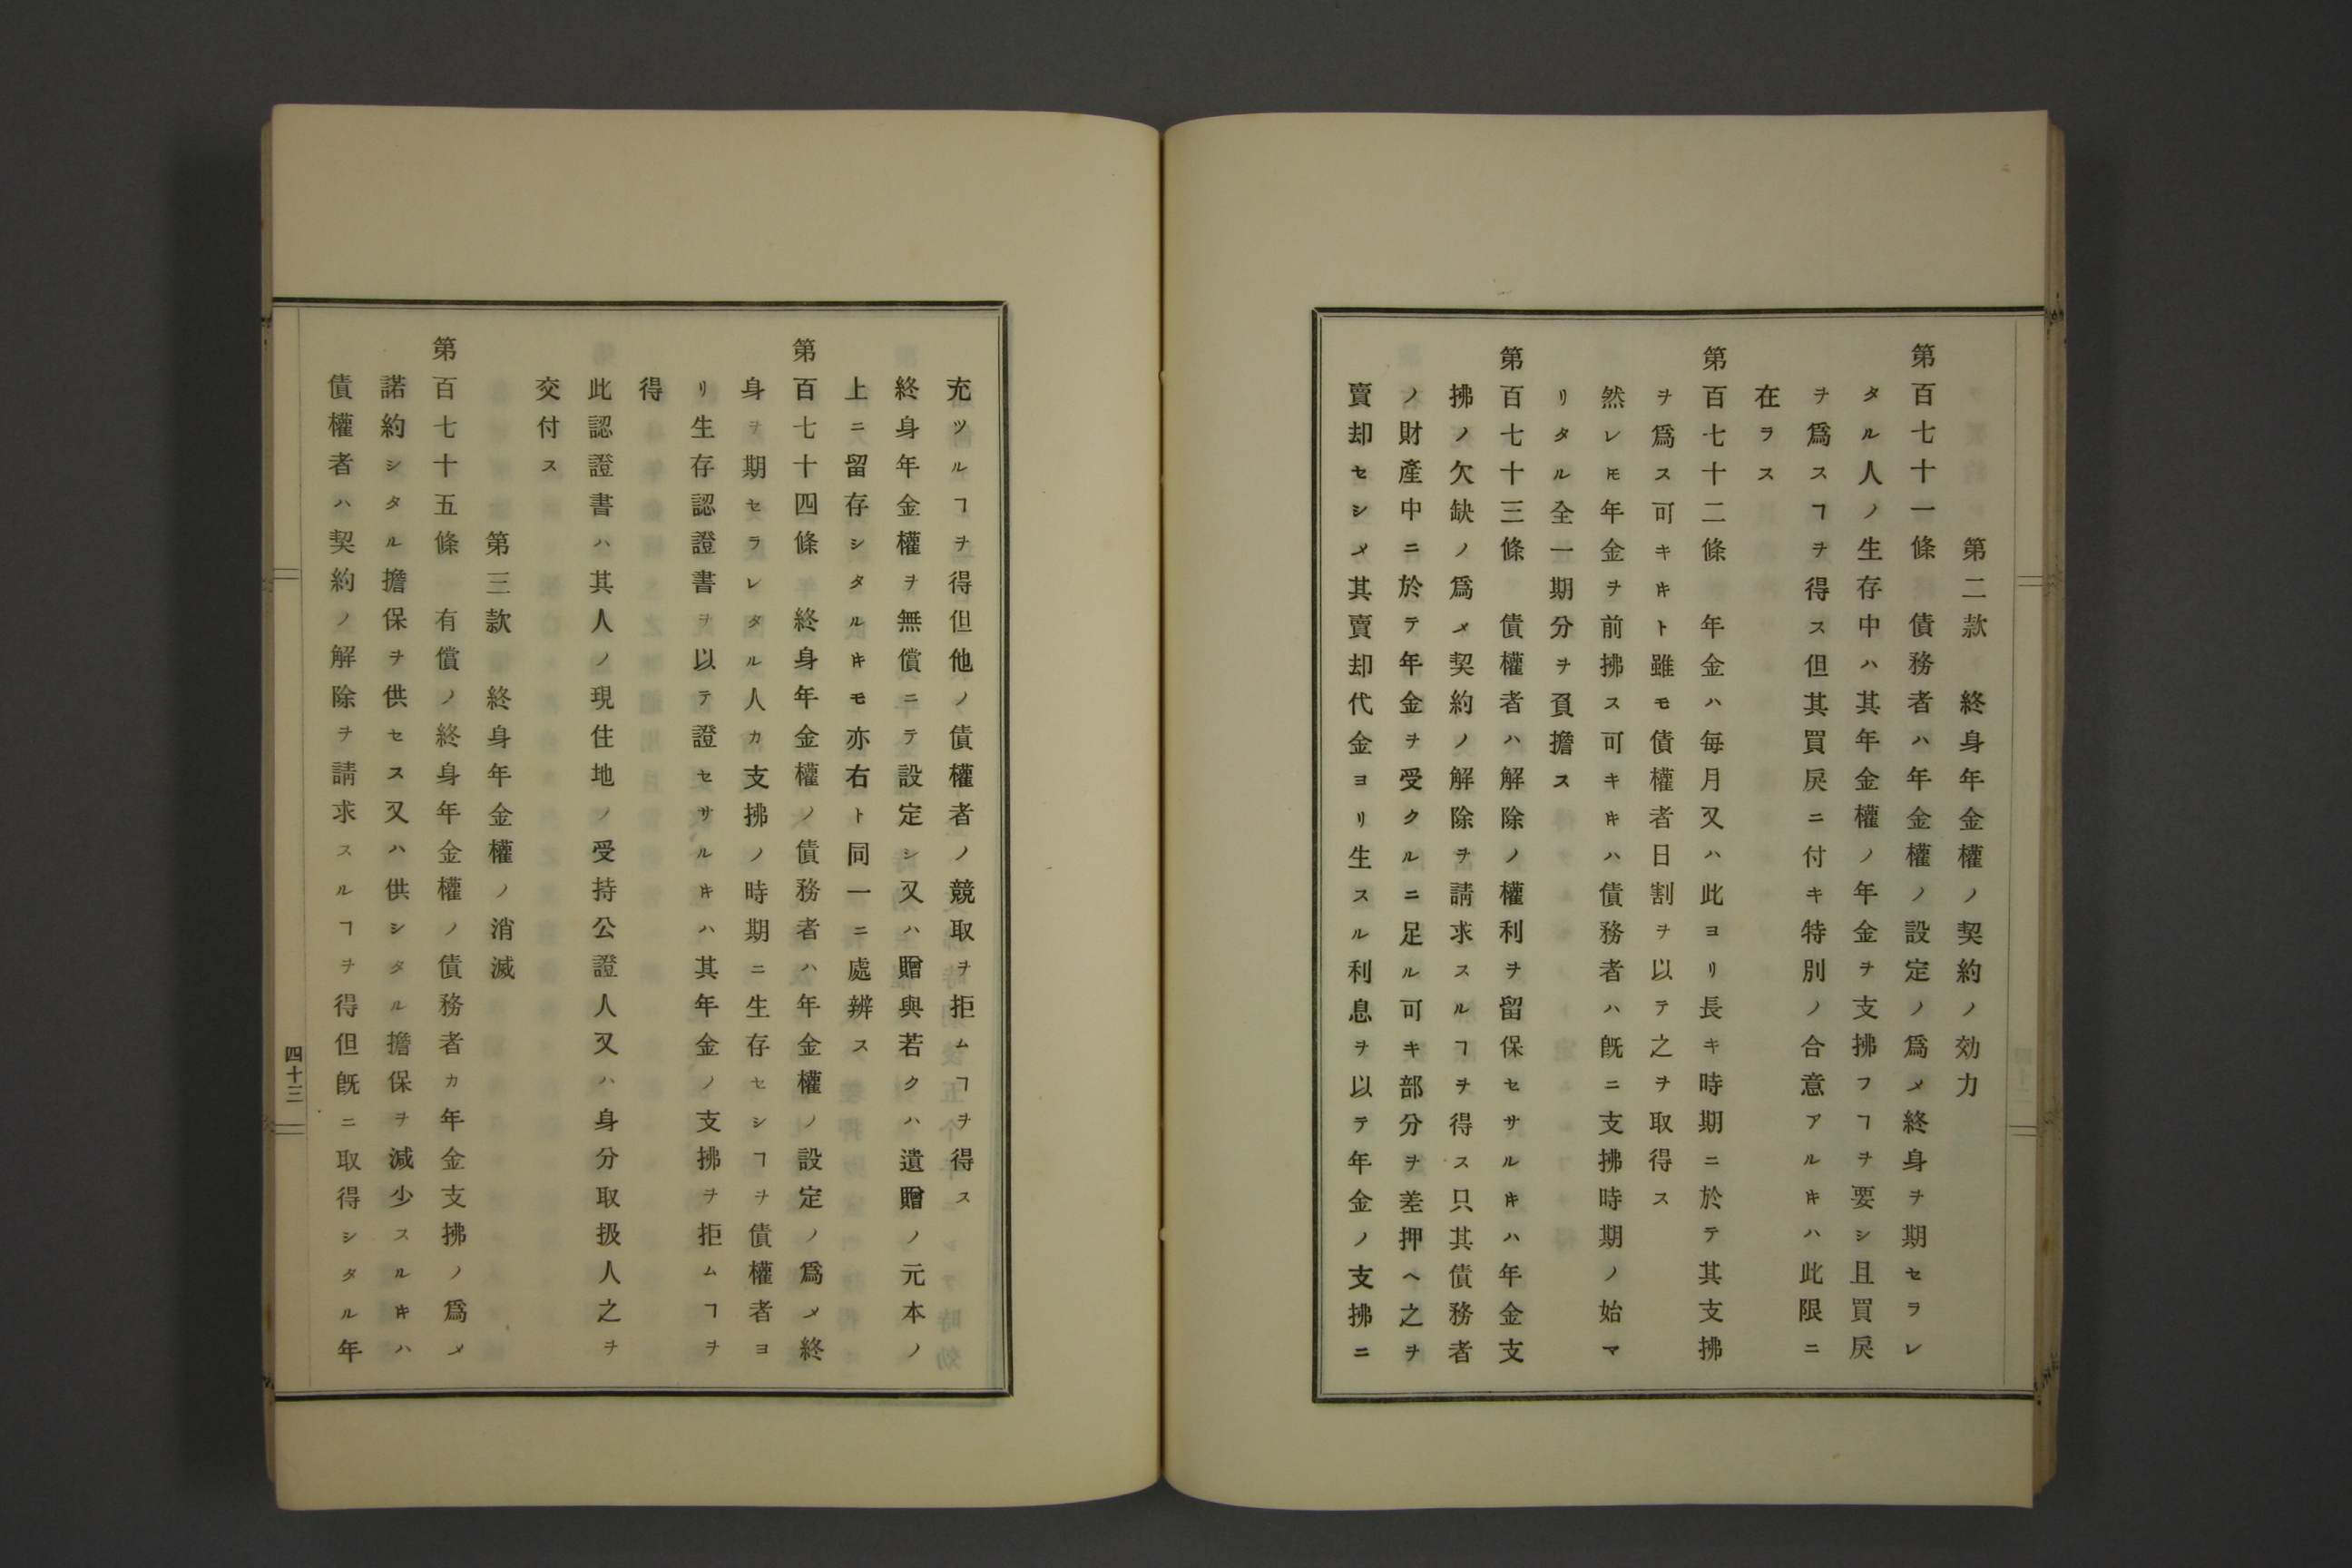 第二款　終身年金權ノ契約ノ効力
第百七十一條　債務者ハ年金權ノ設定ノ爲メ終身ヲ期セラレ
タル人ノ生存中ハ其年金權ノ年金ヲ支拂フヿヲ要シ且買戻
ヲ爲スヿヲ得ス但其買戻ニ付キ特別ノ合意アルキハ此限ニ
在ラス
第百七十二條　年金ハ毎月又ハ此ヨリ長キ時期ニ於テ其支拂
ヲ爲ス可キキト雖モ債權者日割ヲ以テ之ヲ取得ス
然レ𪜈年金ヲ前拂ス可キキハ債務者ハ既ニ支拂時期ノ始マ
リタル全一期分ヲ負擔ス
第百七十三條　債權者ハ解除ノ權利ヲ留保セサルキハ年金支
拂ノ欠缺ノ爲メ契約ノ解除ヲ請求スルヿヲ得ス只其債務者
ノ財產中ニ於テ年金ヲ受クルニ足ル可キ部分ヲ差押ヘ之ヲ
賣却セシメ其賣却代金ヨリ生スル利息ヲ以テ年金ノ支拂ニ
充ツルヿヲ得但他ノ債權者ノ競取ヲ拒ムヿヲ得ス
終身年金權ヲ無償ニテ設定シ又ハ贈與若クハ遺贈ノ元本ノ
上ニ留存シタルキモ亦右ト同一ニ處辨ス
第百七十四條　終身年金權ノ債務者ハ年金權ノ設定ノ爲メ終
身ヲ期セラレタル人カ支拂ノ時期ニ生存セシヿヲ債權者ヨ
リ生存認證書ヲ以テ證セサルキハ其年金ノ支拂ヲ拒ムヿヲ
得
此認證書ハ其人ノ現住地ノ受持公證人又ハ身分取扱人之ヲ
交付ス
第三款　終身年金權ノ消滅
第百七十五條　有償ノ終身年金權ノ債務者カ年金支拂ノ爲メ
諾約シタル擔保ヲ供セス又ハ供シタル擔保ヲ減少スルキハ
債權者ハ契約ノ解除ヲ請求スルヿヲ得但既ニ取得シタル年
四十三